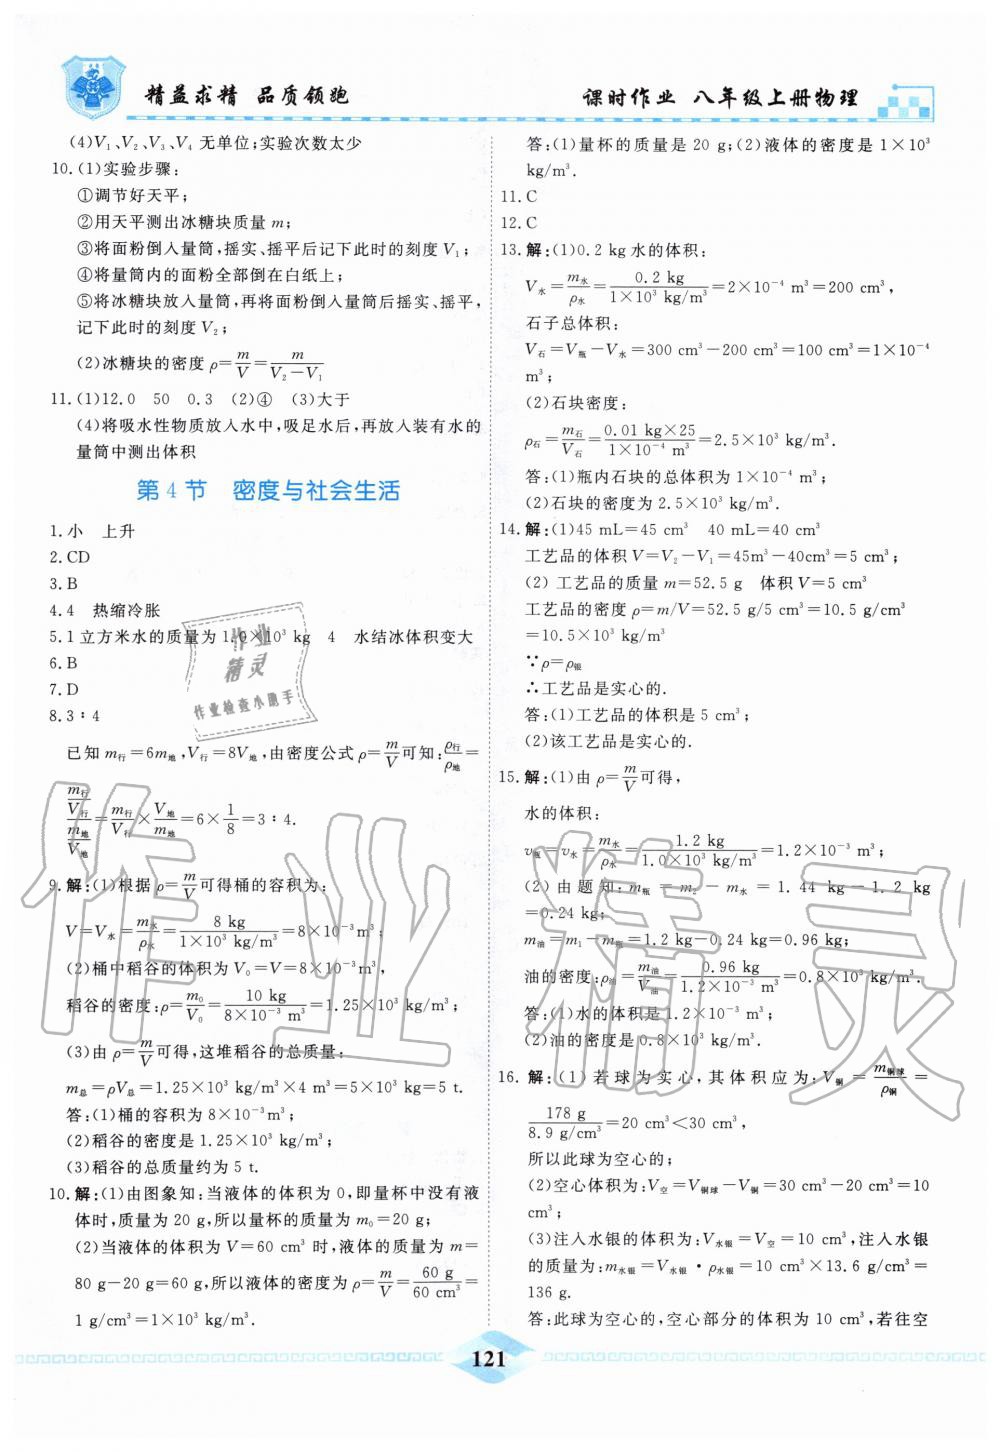 精益求精 品质领跑
课时作业 八年级上册物理
(4)V₁、V₂、V₃、V₄ 无单位;实验次数太少
10.(1)实验步骤:
①调节好天平;
②用天平测出冰糖块质量 m;
③将面粉倒入量筒,摇实、摇平后记下此时的刻度 V₁;
④将量筒内的面粉全部倒在白纸上;
⑤将冰糖块放入量筒,再将面粉倒入量筒后摇实、摇平,
记下此时的刻度 V₂;
(2)冰糖块的密度 ρ=m/V=m/(V₂-V₁)
11.(1)12.0 50 0.3 (2)④ (3)大于
(4)将吸水性物质放入水中,吸足水后,再放入装有水的
量筒中测出体积
第 4 节 密度与社会生活
1.小 上升
2.CD
3.B
4.4 热缩冷胀
5.1 立方米水的质量为 1.0×10³ kg 4 水结冰体积变大
6.B
7.D
8.3∶4
已知 m行=6m地,V行=8V地,由密度公式 ρ=m/V可知:ρ行/ρ地=
(m行/V行)/(m地/V地)=m行/V行×V地/m地=6×1/8=3∶4.
9.解:(1)根据 ρ=m/V可得桶的容积为:
V=V水=m水/ρ水=8 kg/(1×10³ kg/m³)=8×10⁻³m³;
(2)桶中稻谷的体积为 V₀=V=8×10⁻³m³,
稻谷的密度:ρ=m₀/V₀=10 kg/(8×10⁻³ m³)=1.25×10³ kg/m³;
(3)由 ρ=m/V可得,这堆稻谷的总质量:
m总=ρV总=1.25×10³ kg/m³×4 m³=5×10³ kg=5 t.
答:(1)桶的容积为 8×10⁻³m³;
(2)稻谷的密度是 1.25×10³ kg/m³;
(3)稻谷的总质量约为 5 t.
10.解:(1)由图象知:当液体的体积为 0,即量杯中没有液
体时,质量为 20 g,所以量杯的质量为 m₀=20 g;
(2)当液体的体积为 V=60 cm³ 时,液体的质量为 m=
80 g-20 g=60 g,所以液体的密度为 ρ=m/V=60 g/60 cm³=
1 g/cm³=1×10³ kg/m³.
答:(1)量杯的质量是 20 g;(2)液体的密度是 1×10³
kg/m³.
11.C
12.C
13.解:(1)0.2 kg 水的体积:
V水=m水/ρ水=0.2 kg/(1×10³ kg/m³)=2×10⁻⁴ m³=200 cm³,
石子总体积:
V石=V瓶-V水=300 cm³-200 cm³=100 cm³=1×10⁻⁴
m³;
(2)石块密度:
ρ石=m石/V石=0.01 kg×25/(1×10⁻⁴ m³)=2.5×10³ kg/m³.
答:(1)瓶内石块的总体积为 1×10⁻⁴ m³;
(2)石块的密度为 2.5×10³ kg/m³.
14.解:(1)45 mL=45 cm³ 40 mL=40 cm³
工艺品的体积 V=V₂-V₁=45m³-40cm³=5 cm³;
(2) 工艺品的质量 m=52.5 g 体积 V=5 cm³
工艺品的密度 ρ=m/V=52.5 g/5 cm³=10.5 g/cm³
=10.5×10³ kg/m³
∵ρ=ρ银
∴工艺品是实心的.
答:(1)工艺品的体积是 5 cm³;
(2)该工艺品是实心的.
15.解:(1)由 ρ=m/V可得,
水的体积:
v瓶=v水=m水/ρ水=1.2 kg/(1.0×10³ kg/m³)=1.2×10⁻³ m³;
(2) 由题知:m瓶 = m₂ - m水 = 1.44 kg-1.2 kg
=0.24 kg;
m油=m₁-m瓶=1.2 kg-0.24 kg=0.96 kg;
油的密度:ρ油=m油/V油=0.96 kg/(1.2×10⁻³ m³)=0.8×10³ kg/m³.
答:(1)水的体积是 1.2×10⁻³ m³;
(2)油的密度是 0.8×10³ kg/m³.
16.解:(1) 若球为实心,其体积应为:V铜 = m铜球/ρ铜 =
178 g/(8.9 g/cm³)=20 cm³<30 cm³,
所以此球为空心的;
(2)空心体积为:V空=V铜球-V铜=30 cm³-20 cm³=10
cm³;
(3)注入水银的体积为:V水银=V空=10 cm³,注入水银
的质量为:m水银=V水银·ρ水银=10 cm³×13.6 g/cm³=
136 g.
答:此球为空心的,空心部分的体积为 10 cm³,若往空
121
作业
精灵
作业检查小助手
作业精灵